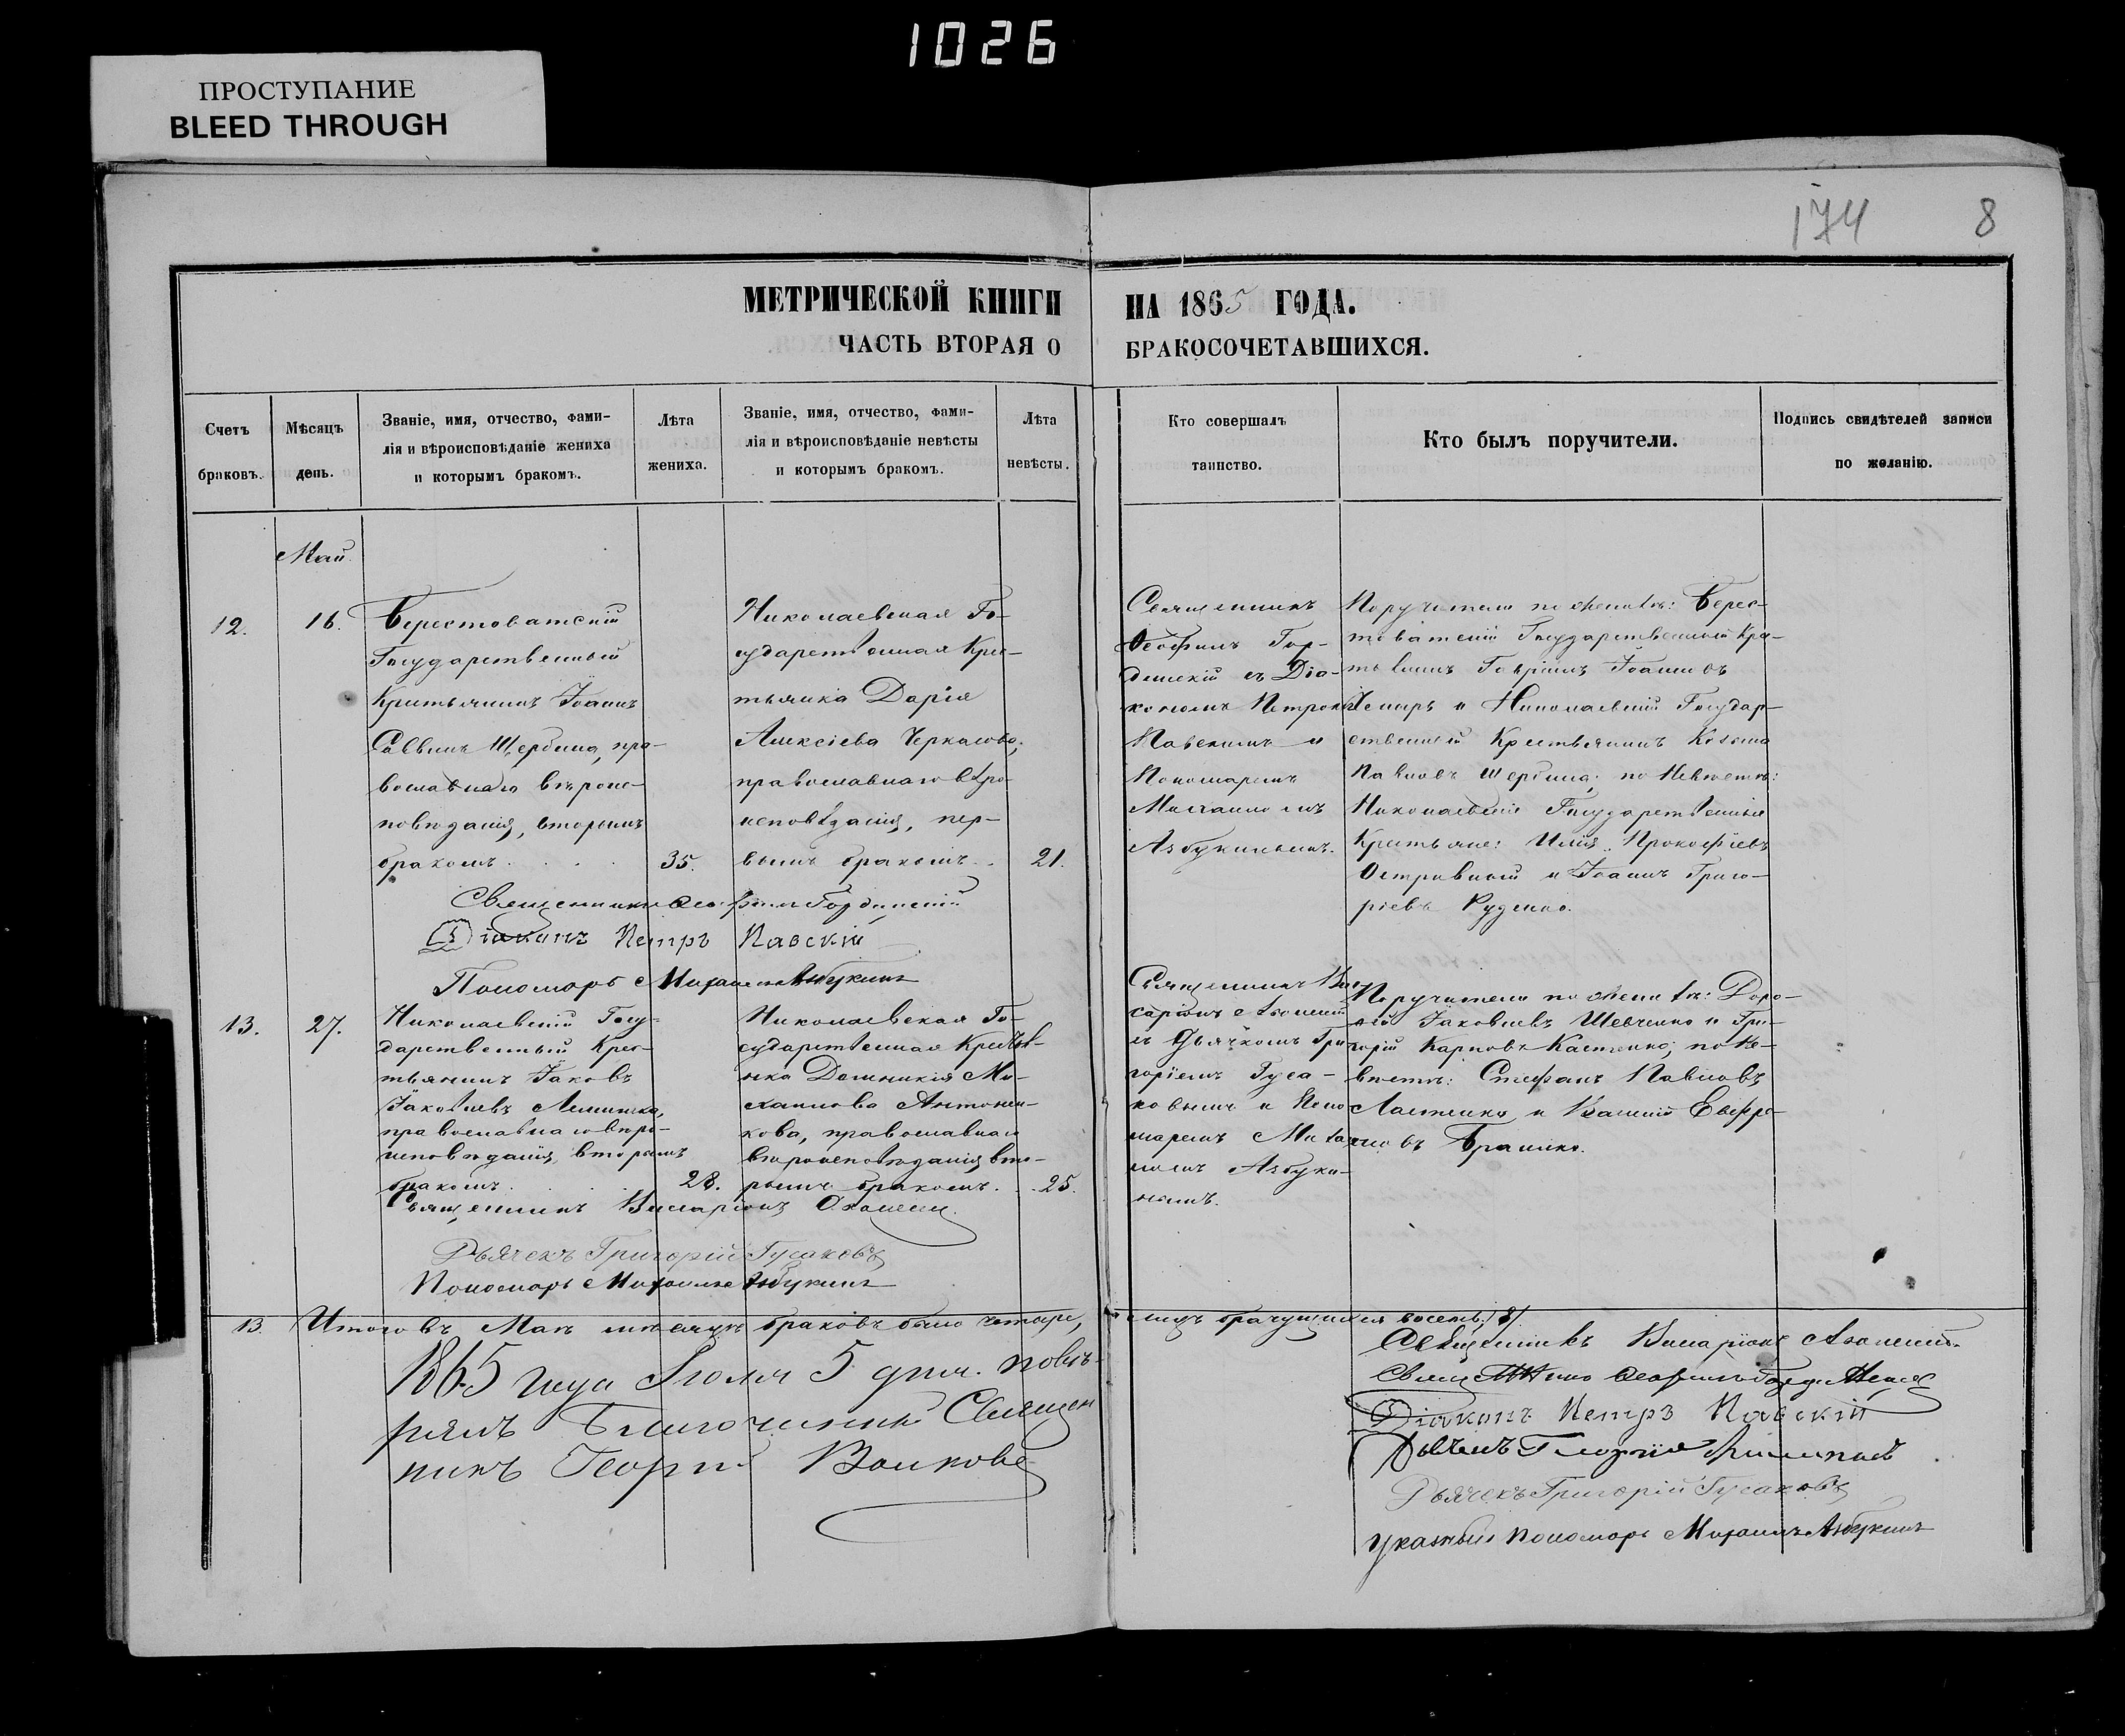 1026
ПРОСТУПАНИЕ
BLEED THROUGH
174 8
МЕТРИЧЕСКОЙ КНИГИ НА 1865 ГОДА.
ЧАСТЬ ВТОРАЯ О БРАКОСОЧЕТАВШИХСЯ.
Счетъ
браковъ.
Мѣсяцъ
день.
Званіе, имя, отчество, фами-
лія и вѣроисповѣданіе жениха
и которымъ бракомъ.
Лѣта
жениха.
Званіе, имя, отчество, фами-
лія и вѣроисповѣданіе невѣсты
и которымъ бракомъ.
Лѣта
невѣсты.
Кто совершалъ
таинство.
Кто былъ поручители.
Подпись свидѣтелей записи
по желанію.
Май.
12.
16.
Берестоватскій
Государственный
Крестьянинъ Іоаннъ
Саввинъ Щербина, пра-
вославнаго вѣроис-
повѣданія, вторымъ
бракомъ
35.
Николаевская Го-
сударственная Крес-
тьянка Дарія
Алексіева Черкасова,
православнаго вѣро-
исповѣданія, пер-
вымъ бракомъ
21.
Священникъ
Ѳеофилъ Гор-
динскій съ Діа-
кономъ Петромъ
Павскимъ и
Пономаремъ
Михаиломъ
Азбукинымъ.
Поручители по женихѣ: Берес-
товатскій Государственный Крес-
тьянинъ Гавріилъ Іоанновъ
и Николаевскій Государ-
ственный Крестьянинъ Козьма
Павловъ Щербина; по невѣстѣ:
Николаевскіе Государственные
Крестьяне: Илія Прокофіевъ
Островный и Іоаннъ Григо-
ріевъ Руденко.
Священникъ Ѳеофилъ Гординскій
Діаконъ Петръ Павскій
Пономарь Михаилъ Азбукинъ
13.
27.
Николаевскій Госу-
дарственный Крес-
тьянинъ Іаковъ
Іаковлевъ
православнаго вѣро-
исповѣданія, вторымъ
бракомъ
28.
Николаевская Го-
сударственная Крестья-
нка Домникія Ми-
хаилова Антонен-
кова, православнаго
вѣроисповѣданія, вто-
рымъ бракомъ
25.
Священникъ Вис-
саріонъ
съ Дьячкомъ Гри-
горіемъ Гуса-
ковымъ и Поно-
маремъ Михаи-
ломъ Азбуки-
нымъ.
Поручители по женихѣ: Доро-
ѳей Іаковлевъ Шевченко и Гри-
горій Карповъ Костенко; по не-
вѣстѣ: Стефанъ Павловъ
Ластенко и Василій
Священникъ Виссаріонъ
Дьячекъ Григорій Гусаковъ
Пономарь Михаилъ Азбукинъ
13. Итого въ Маѣ мѣсяцѣ браковъ было четыре,
лицъ брачущихся восемь /8/.
1865 года Іюля 5 дня. повѣ-
рялъ Благочинный Священ
никъ Георгій Волковъ
Священникъ Виссаріонъ
Священникъ Ѳеофилъ
Діаконъ Петръ Павскій
Дьячекъ Григорій Гусаковъ
указный пономарь Михаилъ Азбукинъ